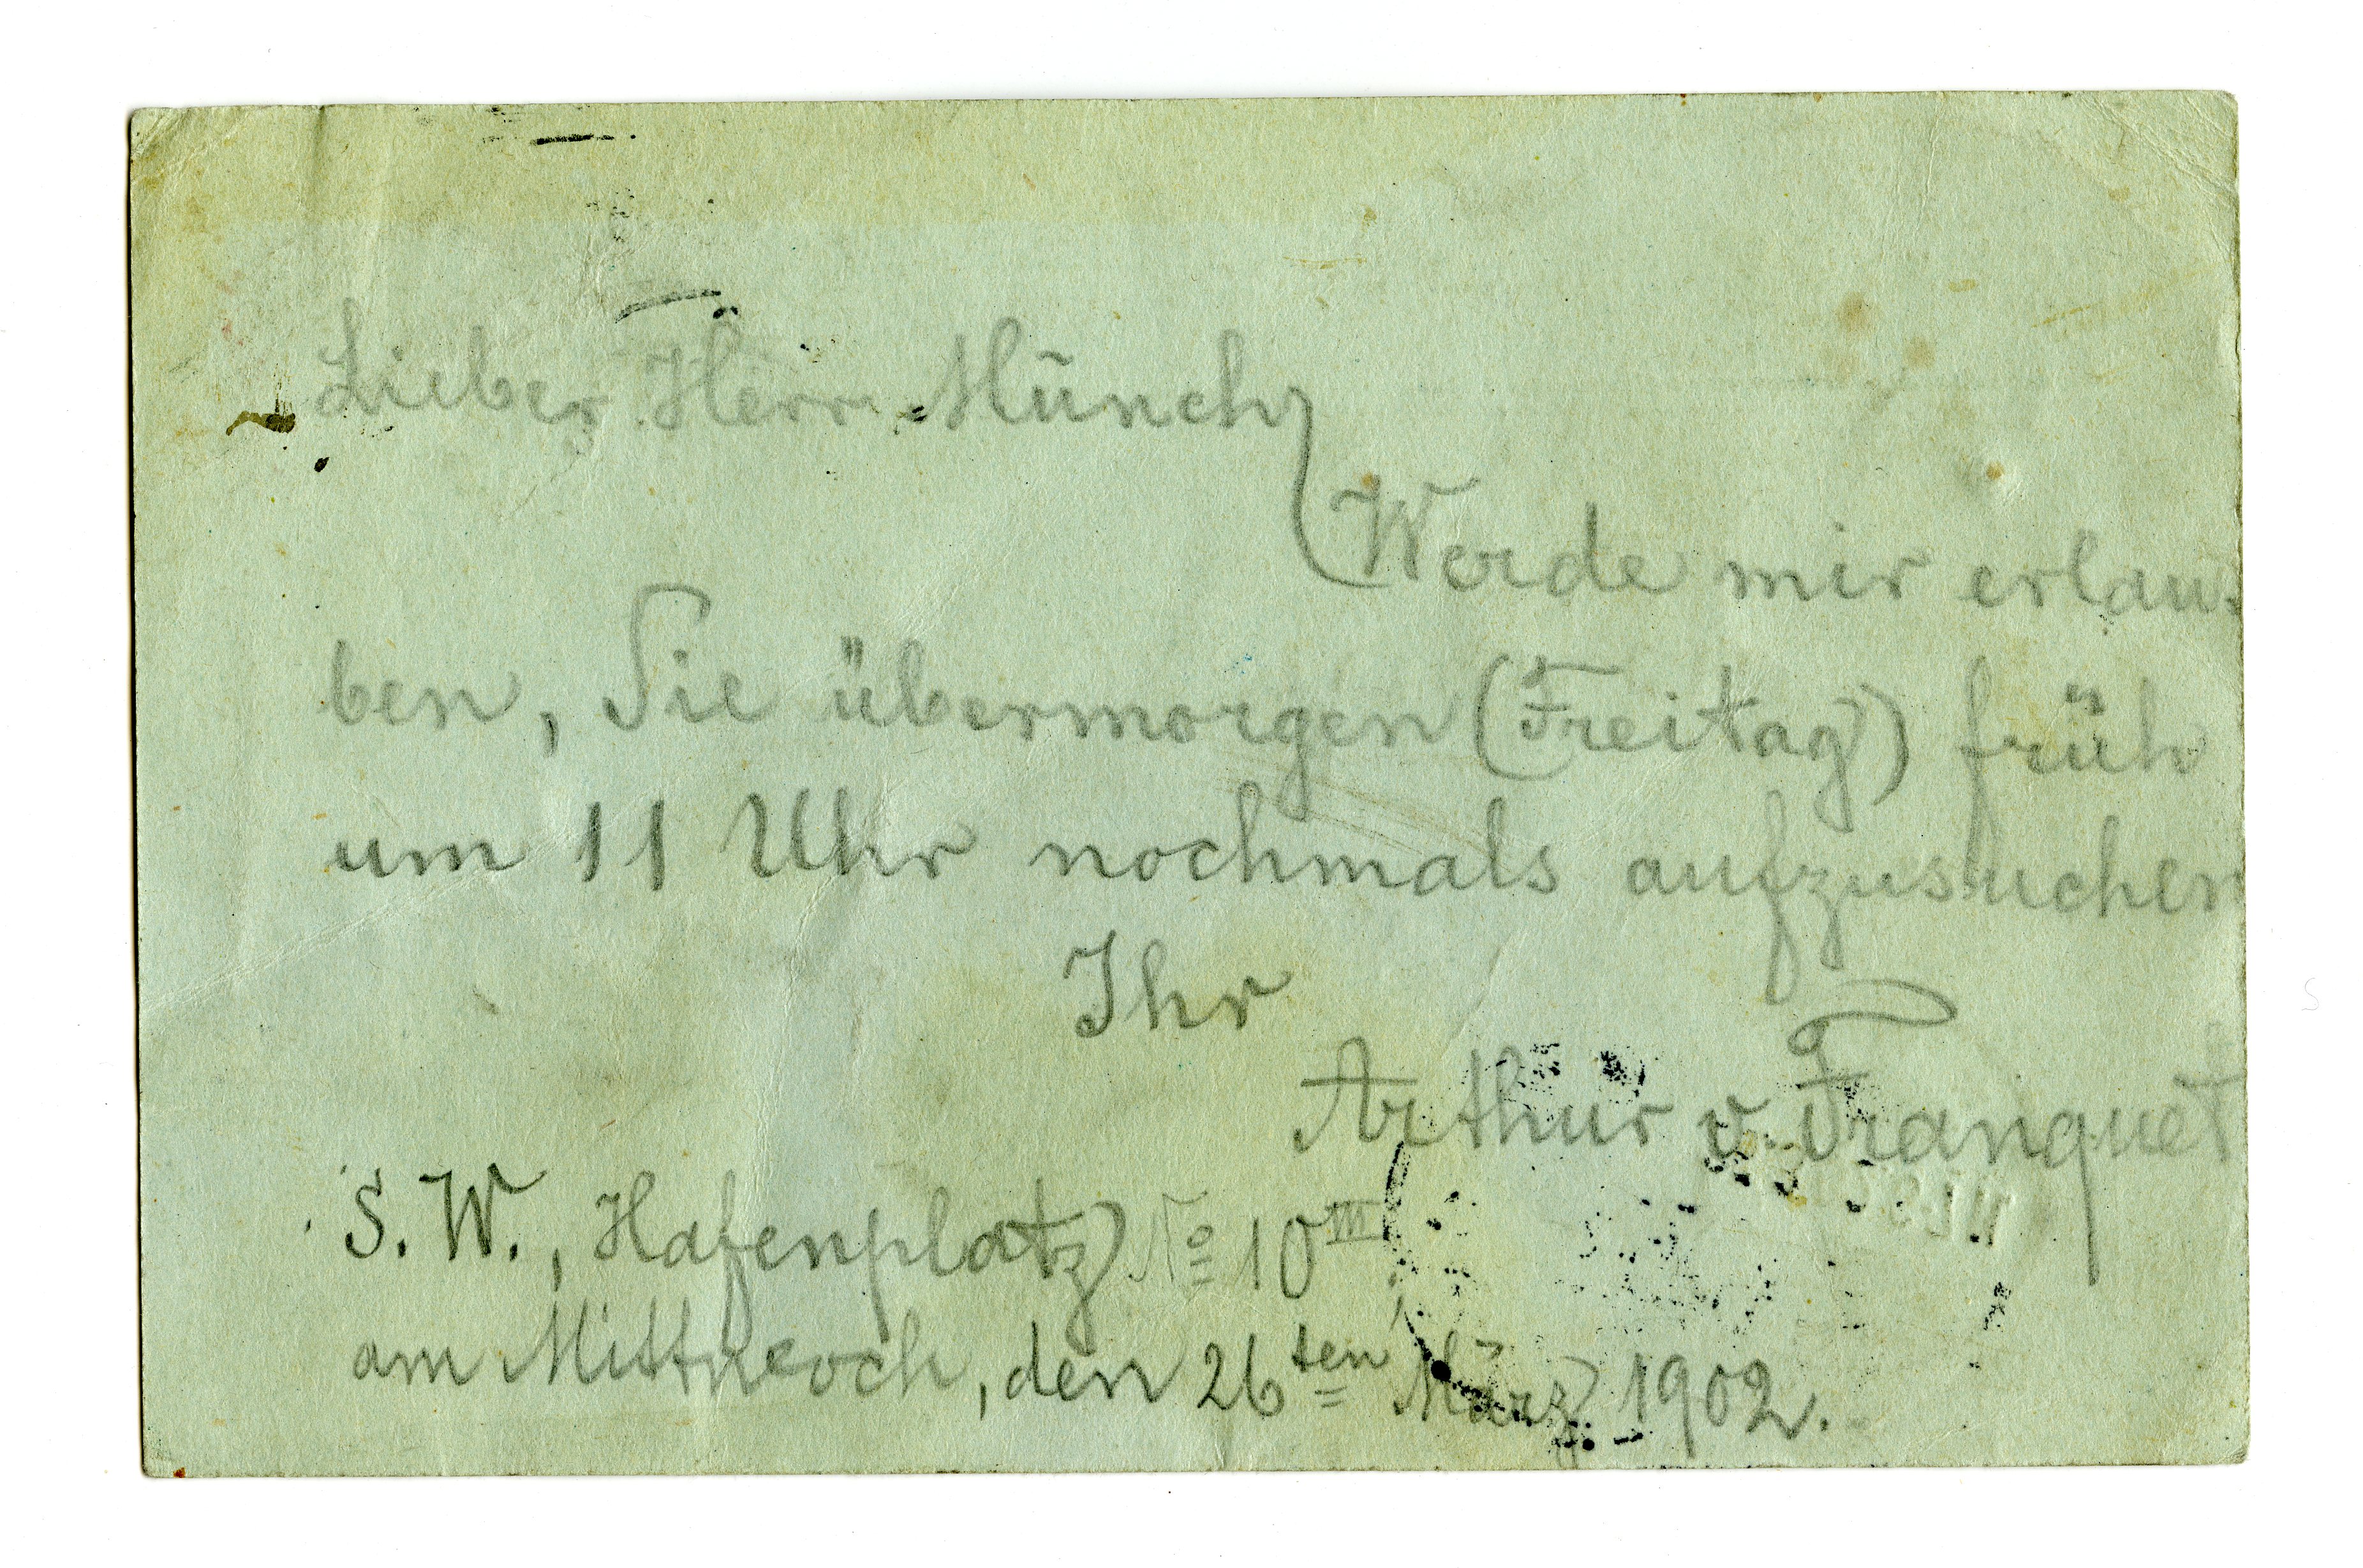 Lieber Herr Münch,
Werde mir erlau-
ben, Sie übermorgen (Freitag) früh
um 11 Uhr nochmals aufzusuchen
Ihr
Arthur v. Franquet
S. W., Hafenplatz No 10 III,
am Mittwoch, den 26ten März 1902.